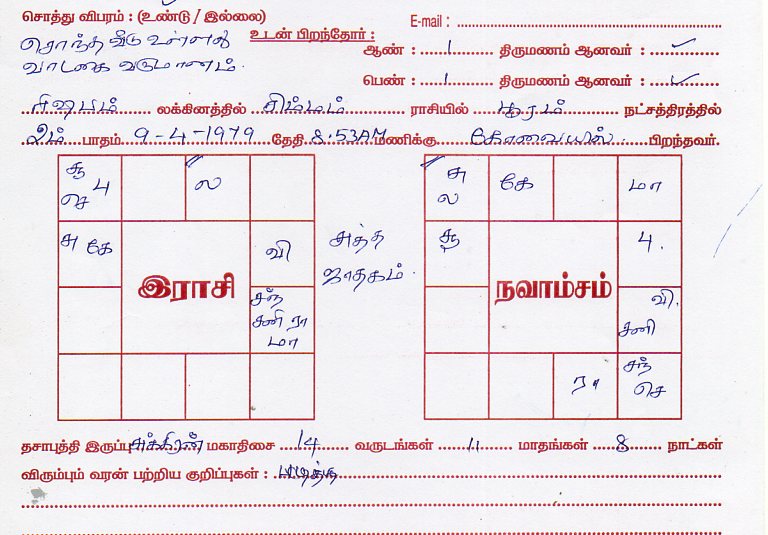 சொத்து விபரம் : (உண்டு / இல்லை)
E-mail :
சொந்த வீடு உள்ளது
வாடகை வருமானம்.
உடன் பிறந்தோர் :
ஆண் : 1 திருமணம் ஆனவர் : ✓
பெண் : 1 திருமணம் ஆனவர் : ✓
ரிஷபம் லக்கினத்தில் சிம்மம் ராசியில் பூரம் நட்சத்திரத்தில்
2ம் பாதம் 9-4-1979 தேதி 8.53AM மணிக்கு கோவையில் பிறந்தவர்.
சூ செ 4
ல
சு கே
வி
சந் சனி ரா மா
இராசி
சுத்த
ஜாதகம்.
சு ல
கே
மா
சூ
4.
வி. சனி
ரா
சந் செ
நவாம்சம்
தசாபுத்தி இருப்பு சுக்கிரன் மகாதிசை 14 வருடங்கள் 11 மாதங்கள் 8 நாட்கள்
விரும்பும் வரன் பற்றிய குறிப்புகள் : படித்த